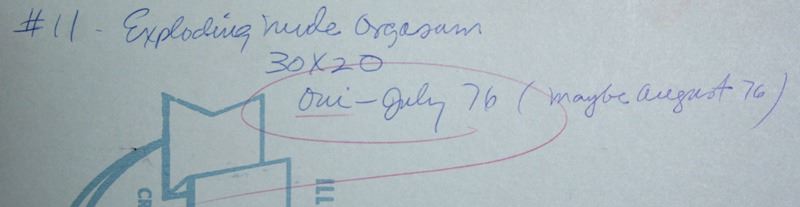 #11 - Exploding nude Orgasam
30X20
Oui - July 76 (maybe august 76)
CR
ILL